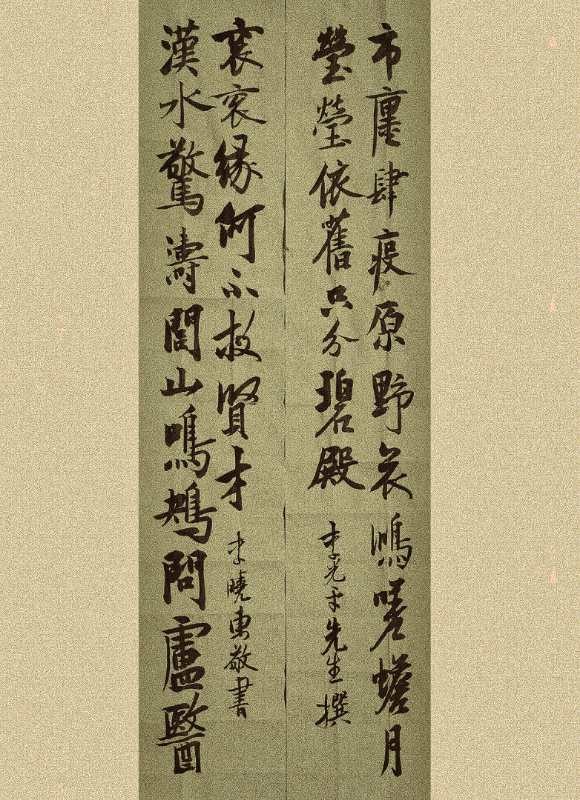 市廛肆疫原野哀鴻嗟蟾月
瑩瑩依舊只分碧殿
李光平先生撰
漢水驚濤閭山鳴鴂問盧醫
衮衮緣何不救賢才
李曉東敬書